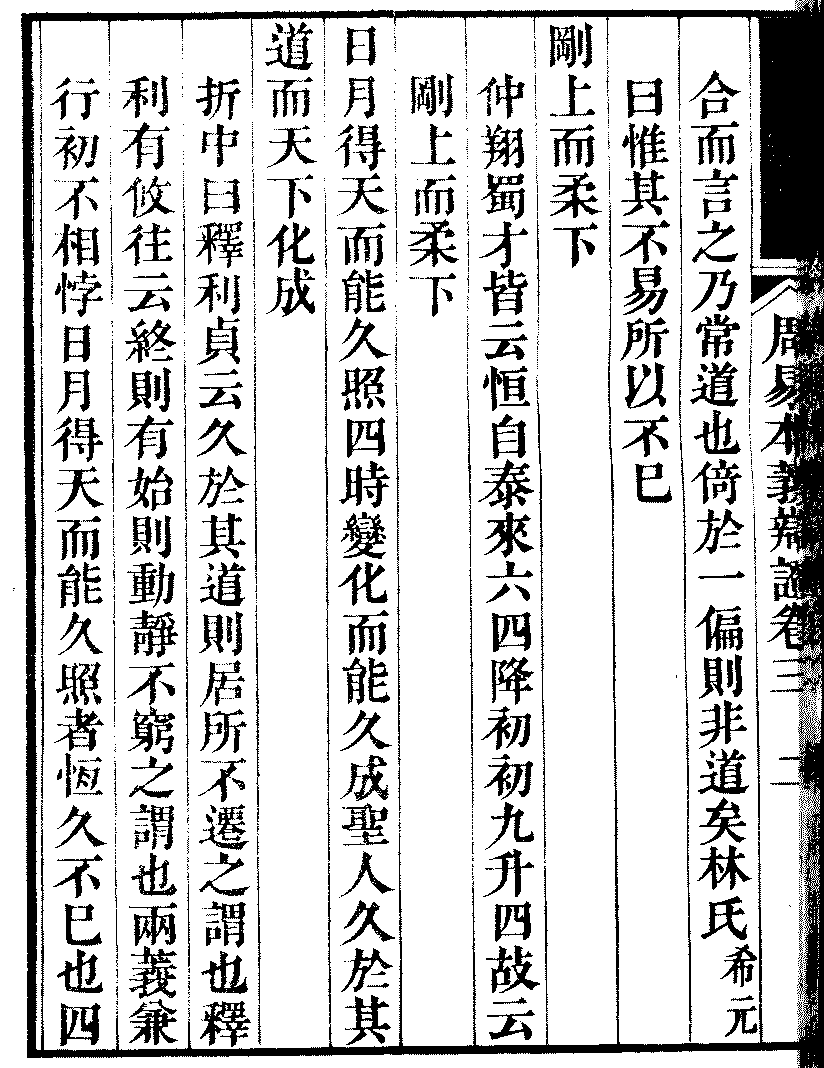 周易本義辯證卷三　二
合而言之乃常道也倚於一偏則非道矣林氏希元
曰惟其不易所以不已
剛上而柔下
仲翔蜀才皆云恒自泰來六四降初初九升四故云
剛上而柔下
日月得天而能久照四時變化而能久成聖人久於其
道而天下化成
折中曰釋利貞云久於其道則居所不遷之謂也釋
利有攸往云終則有始則動靜不窮之謂也兩義兼
行初不相悖日月得天而能久照者恆久不已也四